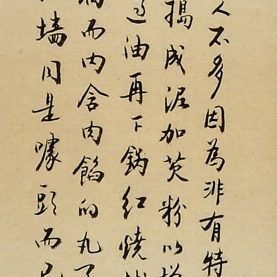 人不多因為非有特
搗成泥加芡粉以增
過油再下鍋紅燒
而內含肉餡的丸子
墙同是噱頭而已